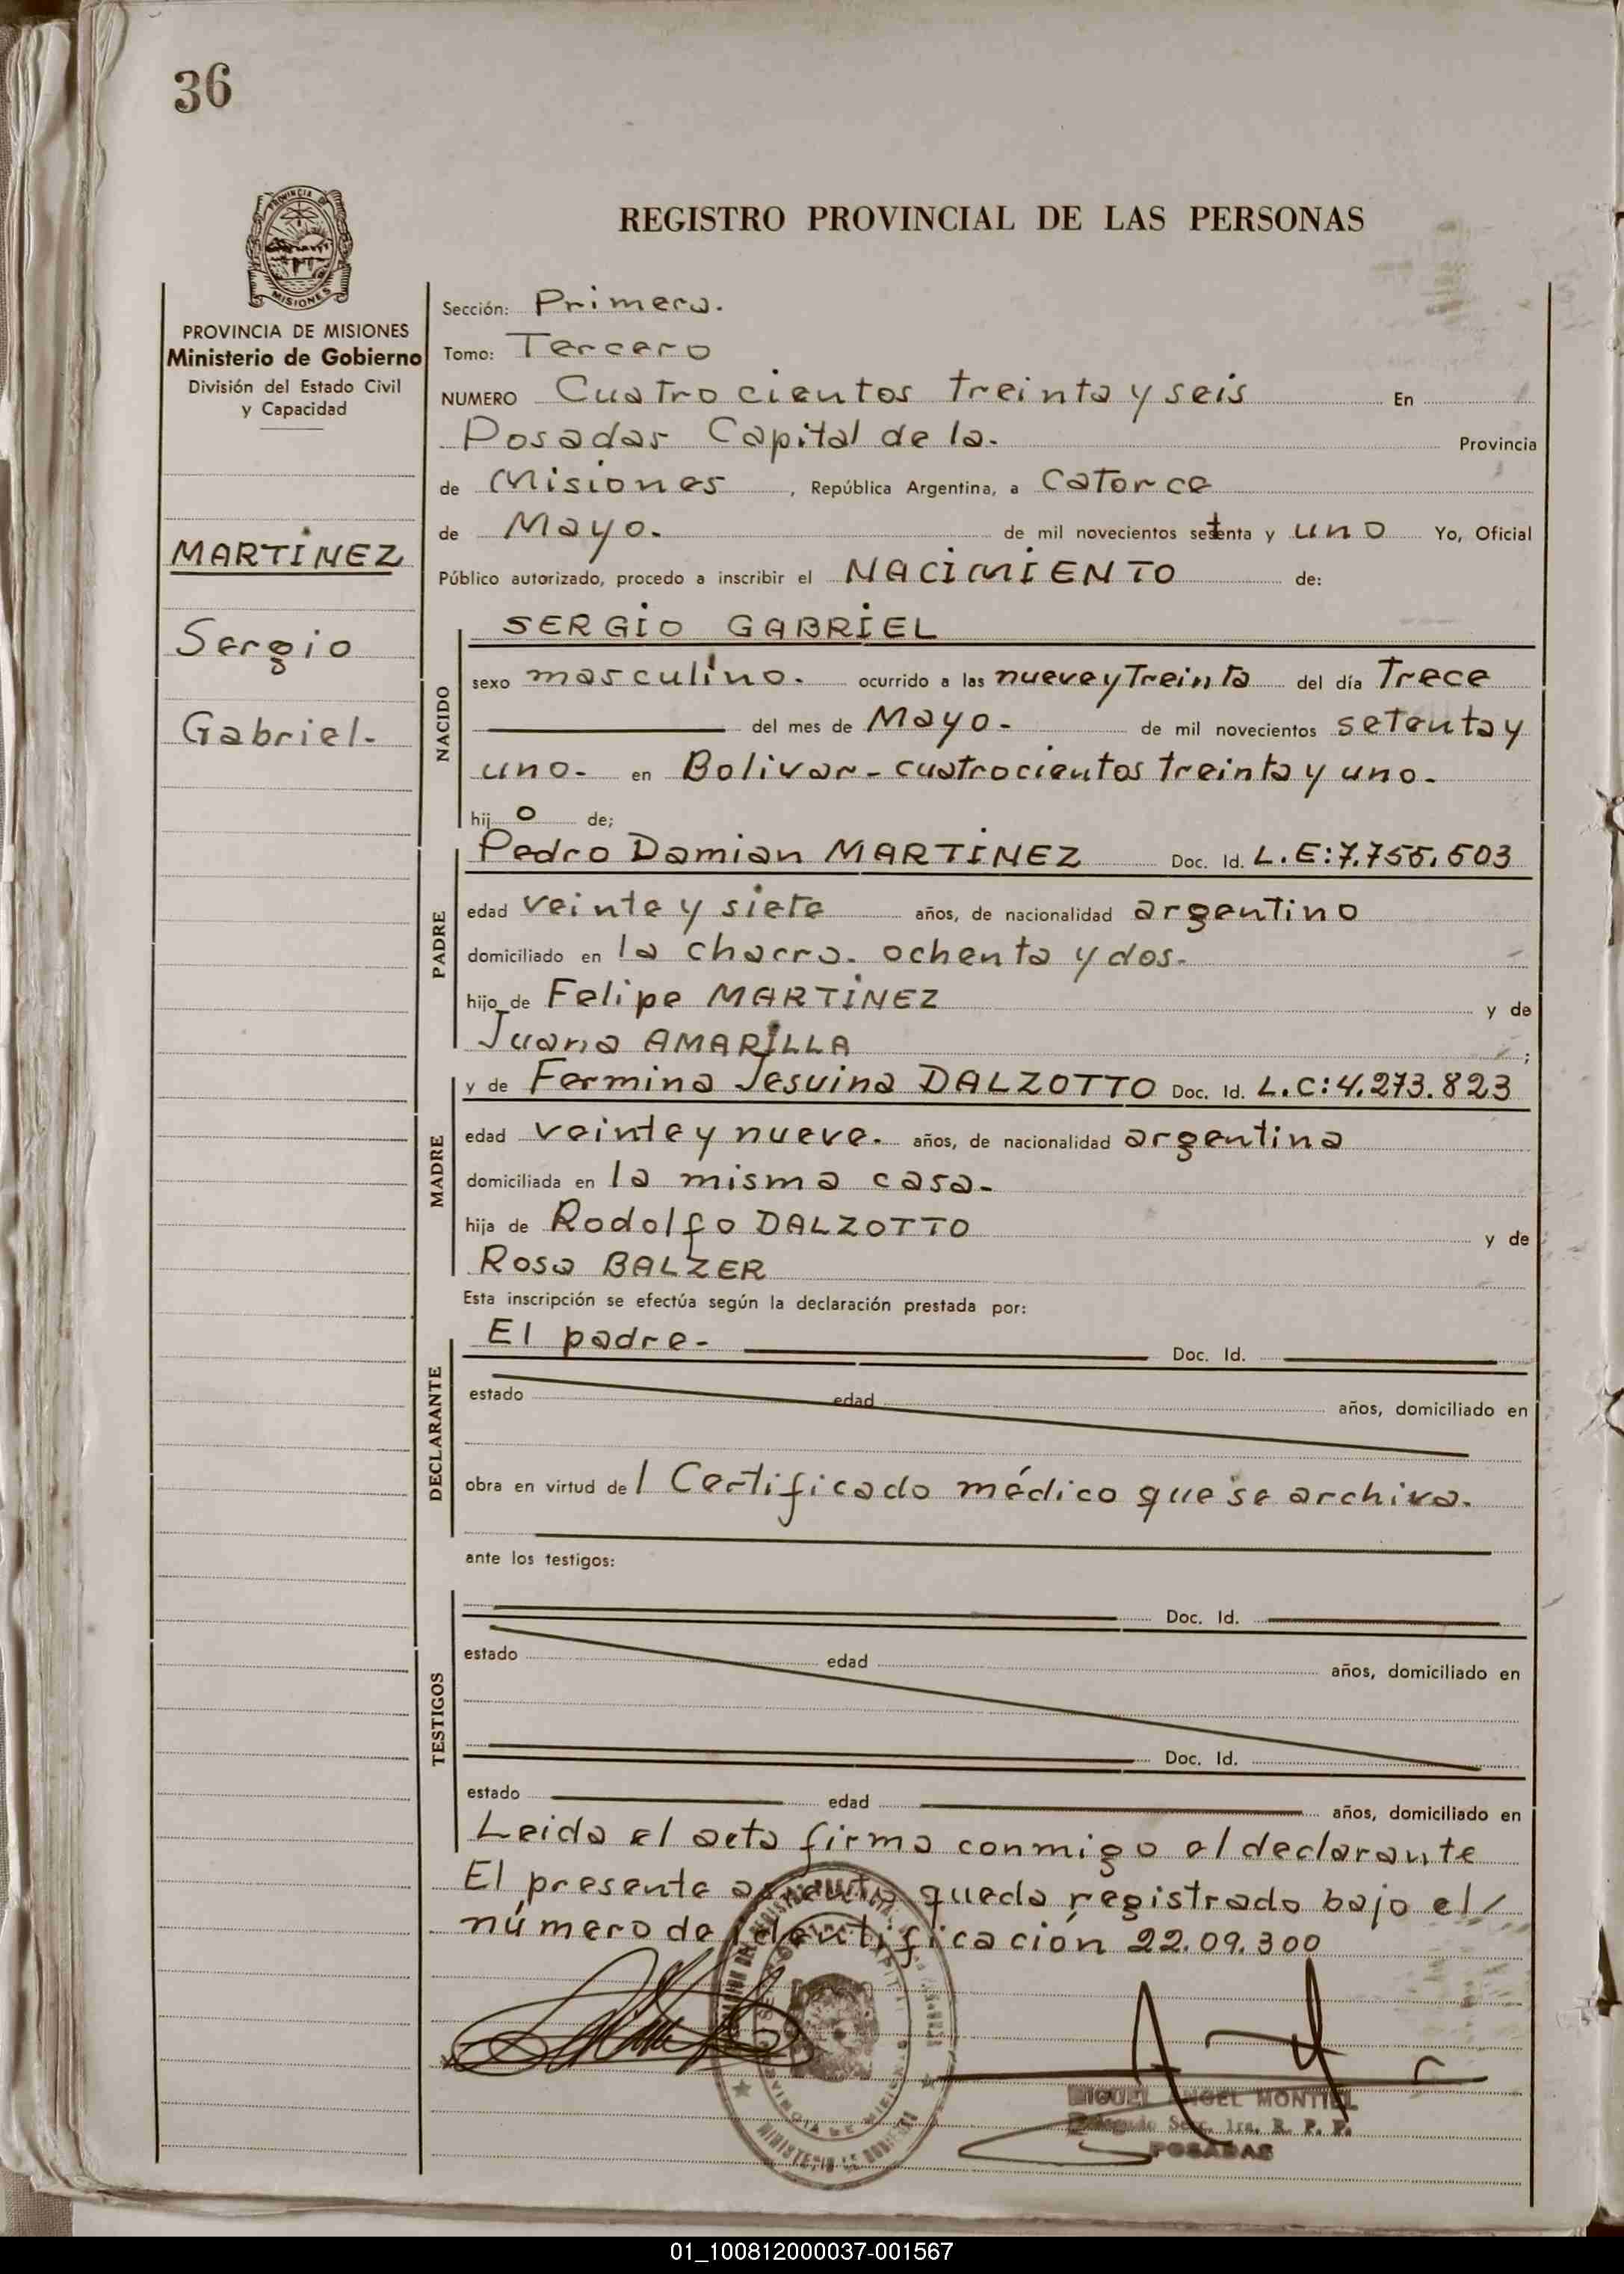 36
REGISTRO PROVINCIAL DE LAS PERSONAS
PROVINCIA DE MISIONES
Ministerio de Gobierno
División del Estado Civil
y Capacidad
MARTINEZ
Sergio
Gabriel-
Sección: Primera.
Tomo: Tercero
NUMERO Cuatrocientos treinta y seis En
Posadas Capital de la- Provincia
de Misiones, República Argentina, a Catorce
de Mayo. de mil novecientos setenta y uno Yo, Oficial
Público autorizado, procedo a inscribir el NACIMIENTO de:
NACIDO
SERGIO GABRIEL
sexo masculino. ocurrido a las nueve y Treinta del día Trece
del mes de Mayo- de mil novecientos setenta y
uno- en Bolivar- cuatrocientos treinta y uno-
hijo de;
PADRE
Pedro Damian MARTINEZ Doc. Id. L.E:7.755.503
edad veinte y siete años, de nacionalidad argentino
domiciliado en la chacra. ochenta y dos-
hijo de Felipe MARTINEZ y de
Juana AMARILLA ;
MADRE
y de Fermina Jesuina DALZOTTO Doc. Id. L.C:4.273.823
edad veinte y nueve. años, de nacionalidad argentina
domiciliada en la misma casa-
hija de Rodolfo DALZOTTO y de
Rosa BALZER
Esta inscripción se efectúa según la declaración prestada por:
DECLARANTE
El padre- Doc. Id.
estado edad años, domiciliado en
obra en virtud del Certificado médico que se archiva.
ante los testigos:
TESTIGOS
Doc. Id.
estado edad años, domiciliado en
Doc. Id.
estado edad años, domiciliado en
Leida el acta firma conmigo el declarante
El presente queda registrado bajo el/
número de Identificación 22.09.300
MIGUEL ANGEL MONTIEL
Delegado Secc. 1ra. R. P. P.
POSADAS
01_100812000037-001567